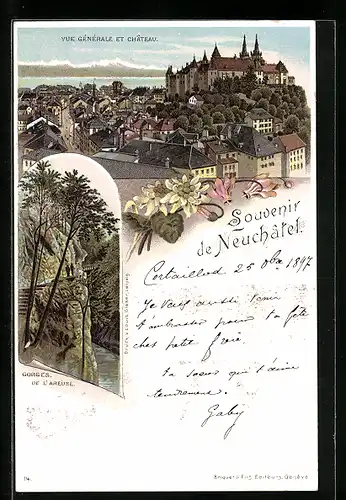 VUE GÉNÉRALE ET CHÂTEAU.
Souvenir
de Neuchâtel.
Cortaillod 25 8bre 1897
Je veux aussi venir
t'embrasser pour ta fête
cher petit
ta soeur qui t'aime
tendrement.
Gaby
GORGES.
DE L'AREUSE.
14.
Editeurs, Genève